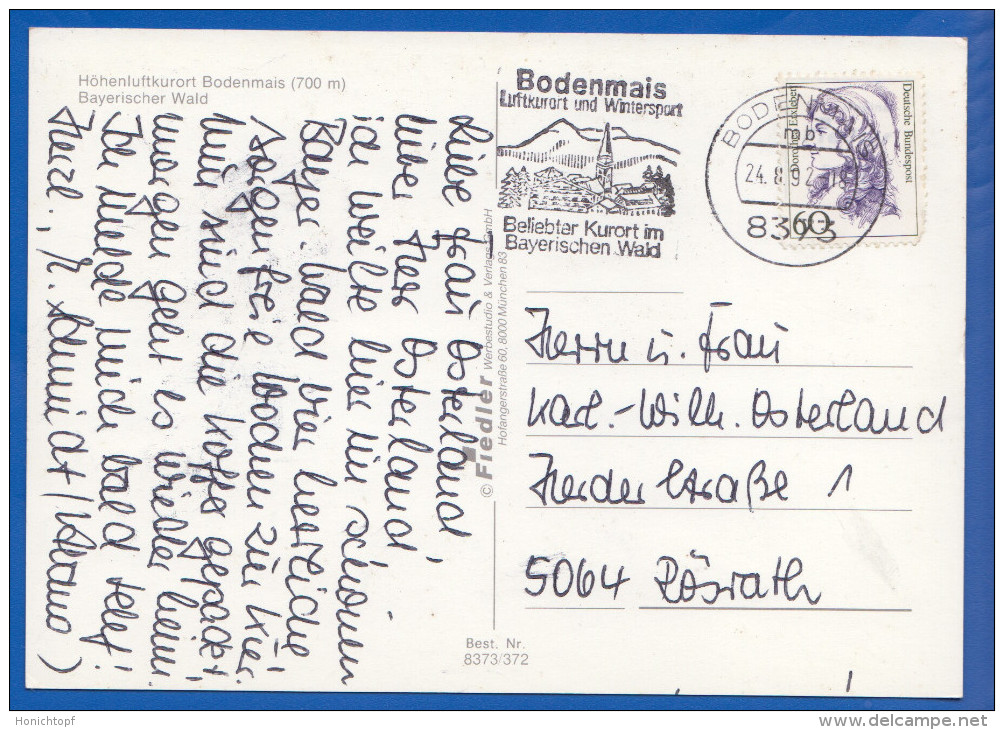 Höhenluftkurort Bodenmais (700 m)
Bayerischer Wald
Bodenmais
Luftkurort und Wintersport
Beliebter Kurort im
Bayerischen Wald
BODENMAIS
mb
24.8.92
8373
Deutsche Bundespost
Dorothea Erxleben
60
Liebe Frau Osterland,
lieber Herr Osterland!
ich weilte hier im schönen
Bayer. Wald vier herrliche
sorgenfreie Wochen zur Kur.
Nun sind die Koffer gepackt
morgen geht es wieder heim
Ich melde mich bald telef!
Herzl.,
Herrn u. Frau
Karl.-Wilh. Osterland
Herderstraße 1
5064 Rösrath
© Fiedler Werbestudio & Verlags GmbH
Hofangerstraße 60, 8000 München 83
Best. Nr.
8373/372
Honichtopf
www.delcampe.net